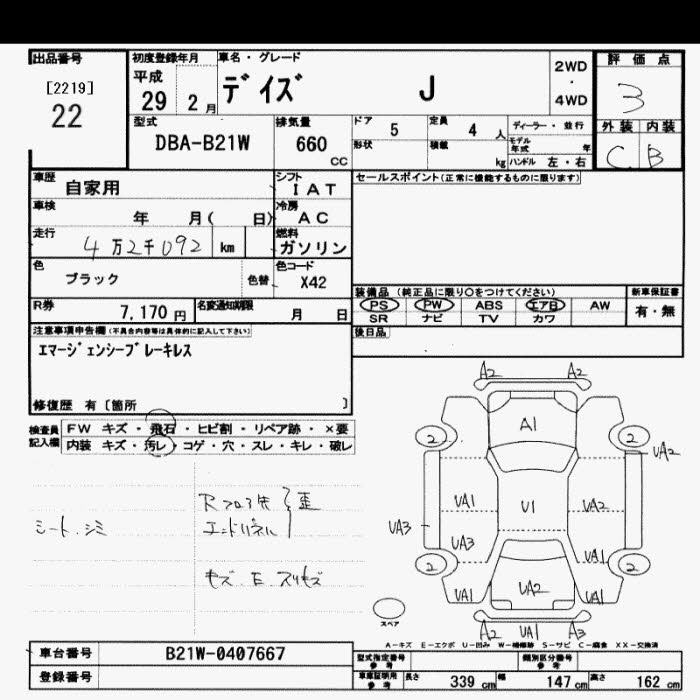 出品番号
[2219]
22
初度登録年月
平成
29 2月
車名・グレード
デイズ J
2WD
・
4WD
評価点
3
外装 内装
C B
型式
DBA-B21W
排気量
660
CC
ドア
5
定員
4 人
ディーラー・並行
形状
積載
kg
モデル年式 年
ハンドル 左・右
車歴
自家用
シフト
IAT
セールスポイント(正常に機能するものに限ります)
車検
年 月( 日)
冷房
AC
走行
4万2千092 km
燃料
ガソリン
色
ブラック
色替
色コード
X42
装備品 (純正品に限り○をつけてください)
新車保証書
PS PW ABS エアB AW
SR ナビ TV カワ
有・無
R券
7,170円
名変通知期限
月 日
後日品
注意事項申告欄(不具合内容等は具体的に記入して下さい)
エマージェンシーブレーキレス
修復歴 有〔箇所 〕
検査員
記入欄
FW キズ・飛石・ヒビ割・リペア跡・×要
内装 キズ・汚レ・コゲ・穴・スレ・キレ・破レ
シート、シミ
エンドパネル
A2 A2
A1
2 2
UA2
UA1 U1 UA2
UA3
UA3 UA1
2 2
UA1 UA2 UA1
A2 UA1 A3
スペア
A-キズ E-エクボ U-凹み W-補修跡 S-サビ C-腐食 XX-交換済
車台番号
B21W-0407667
登録番号
型式指定番号
参考
類別区分番号
参考
車庫証明用
参考
長さ 339cm 幅 147cm 高さ 162cm